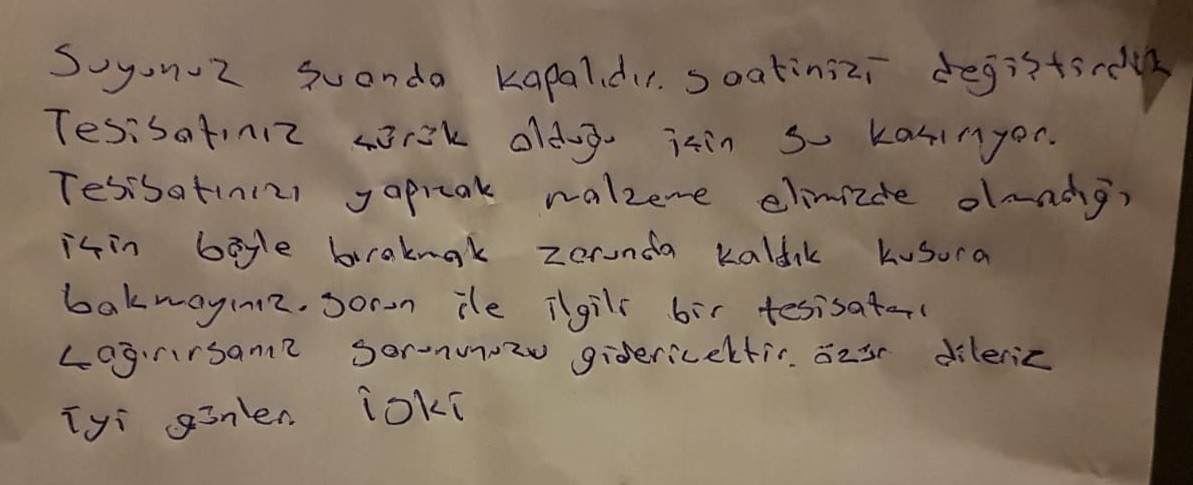 Suyunuz şuanda kapalıdır. saatinizi değiştirdik
Tesisatınız çürük olduğu için su kaçırıyor.
Tesisatınızı yapıcak malzeme elimizde olmadığı
için böyle bırakmak zorunda kaldık kusura
bakmayınız. sorun ile ilgili bir tesisatçı
çağırırsanız sorununuzu gidericektir. özür dileriz
iyi günler. İSKİ